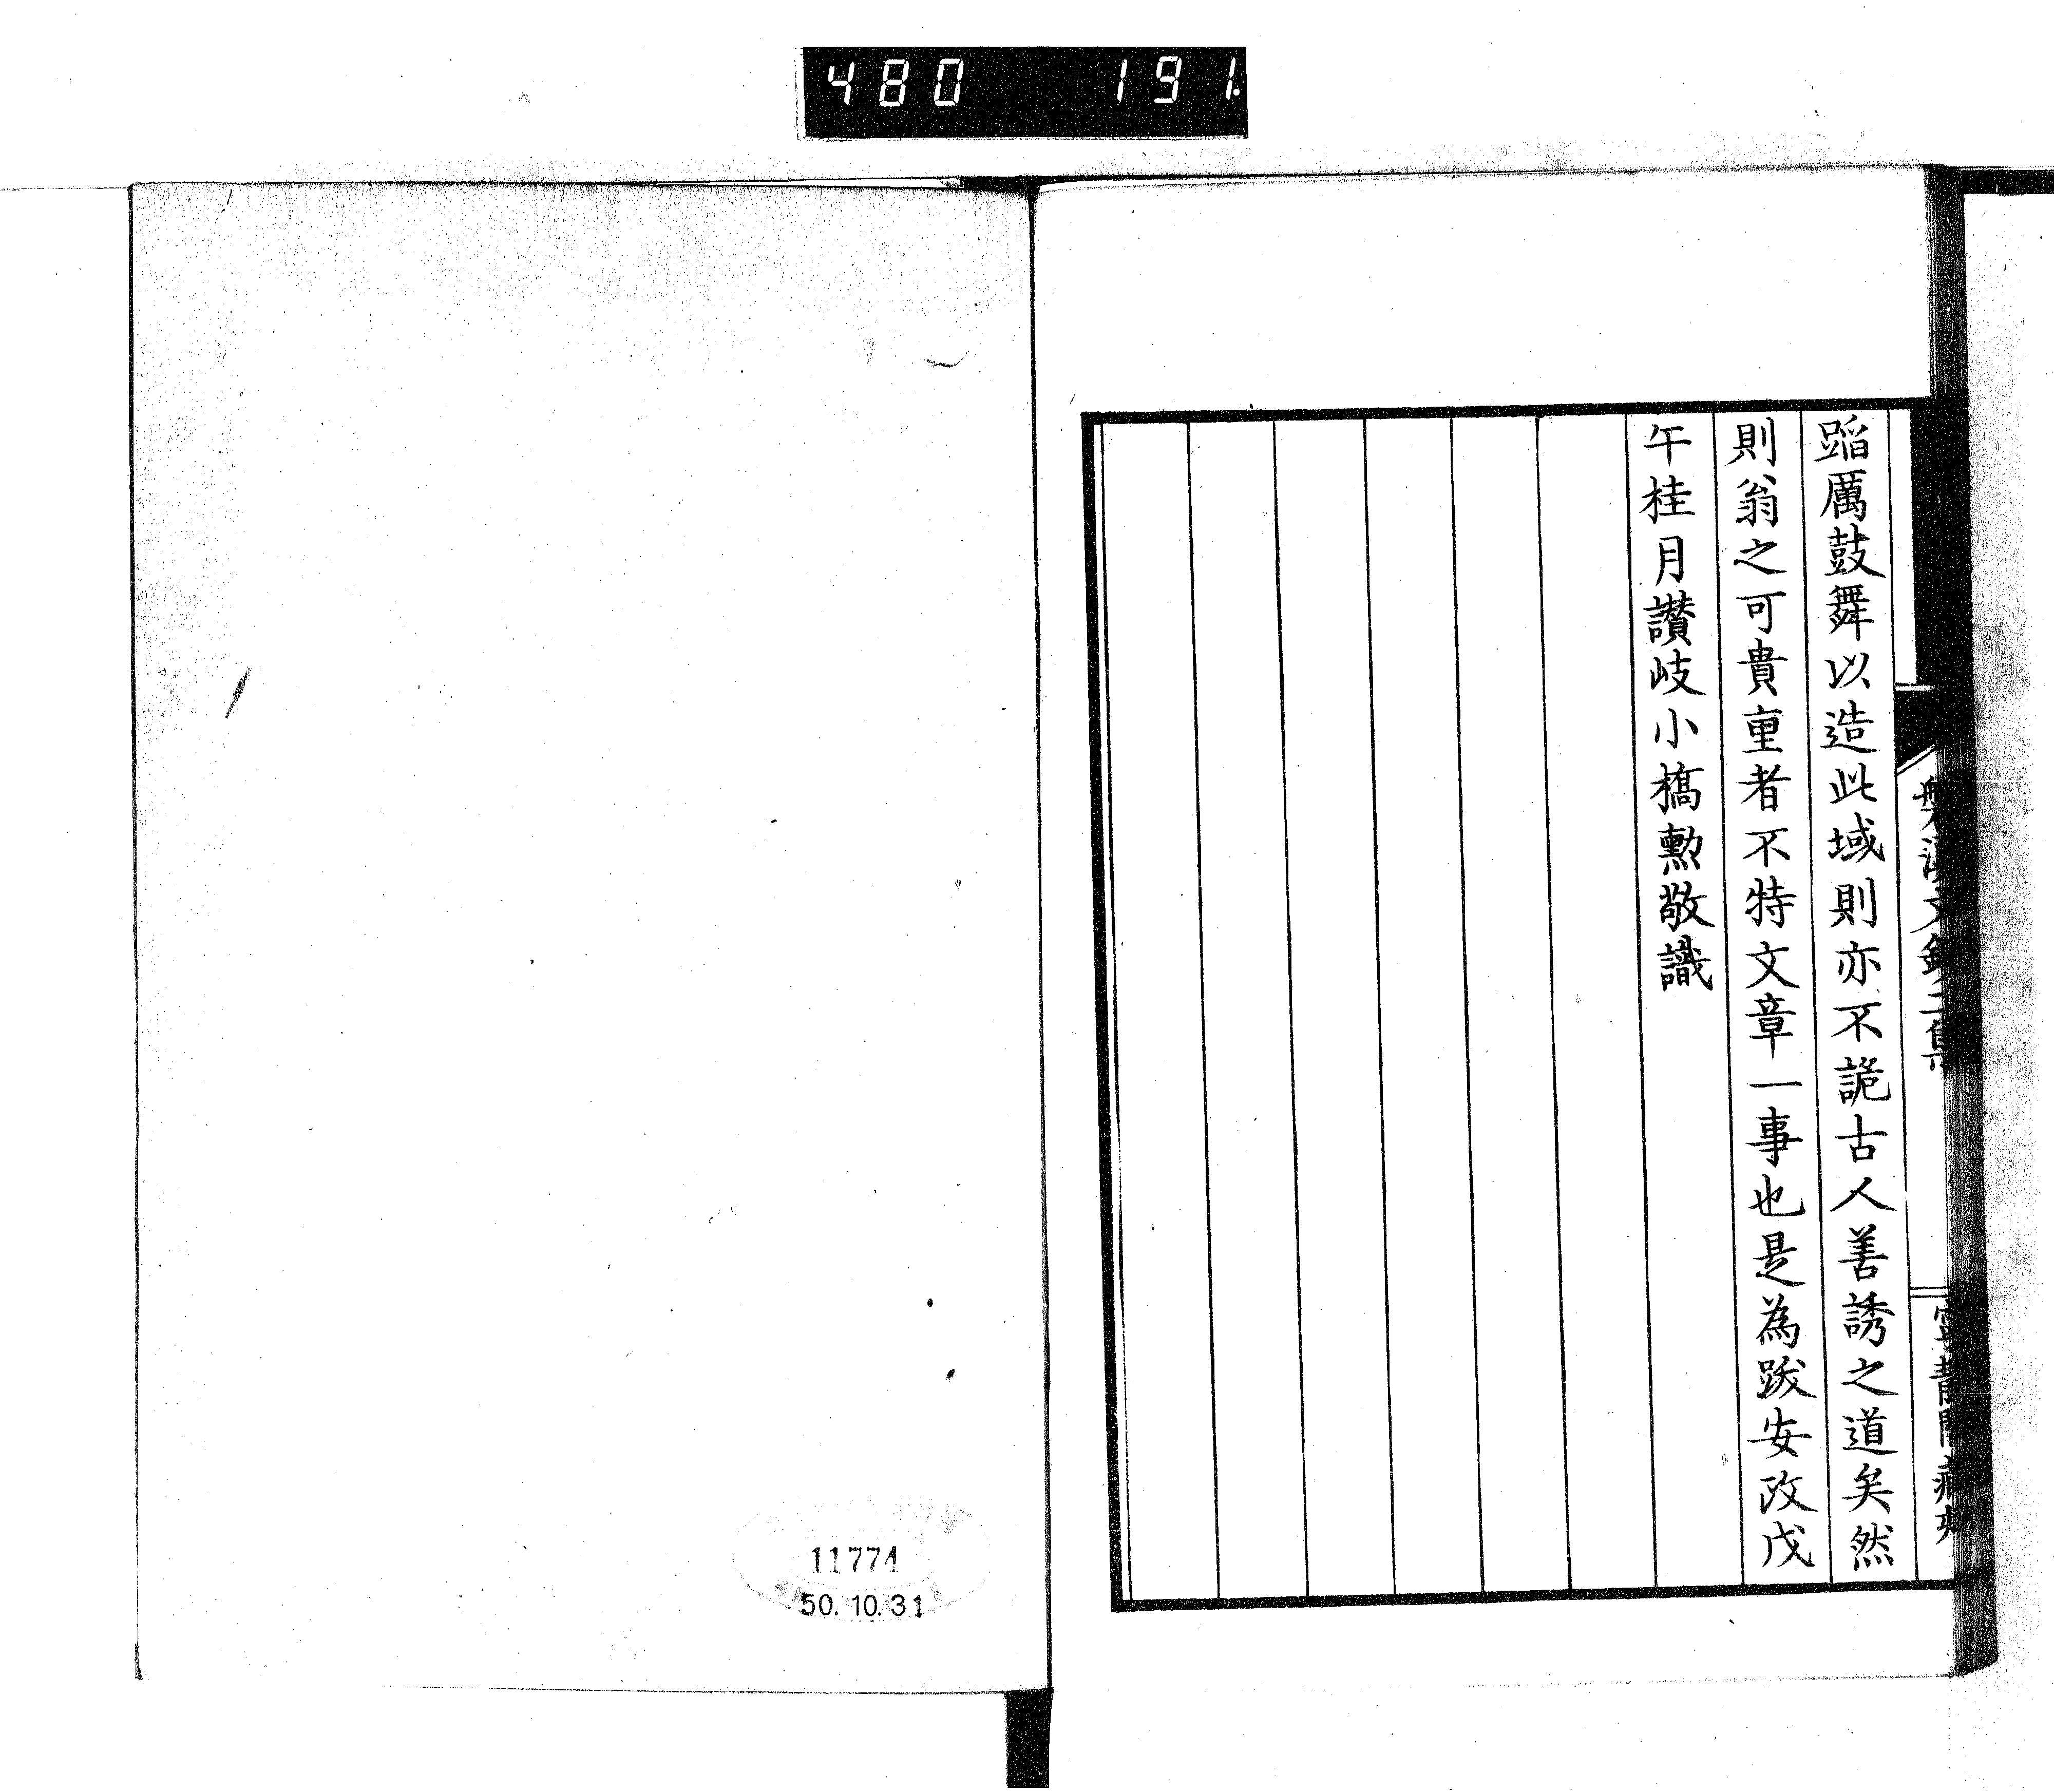 480 191.
蹈厲鼓舞以造此域則亦不詭古人善誘之道矣然
則翁之可貴重者不特文章一事也是為跋安政戊
午桂月讃岐小橋勲敬識
磐溪文鈔二集
11774
50.10.31